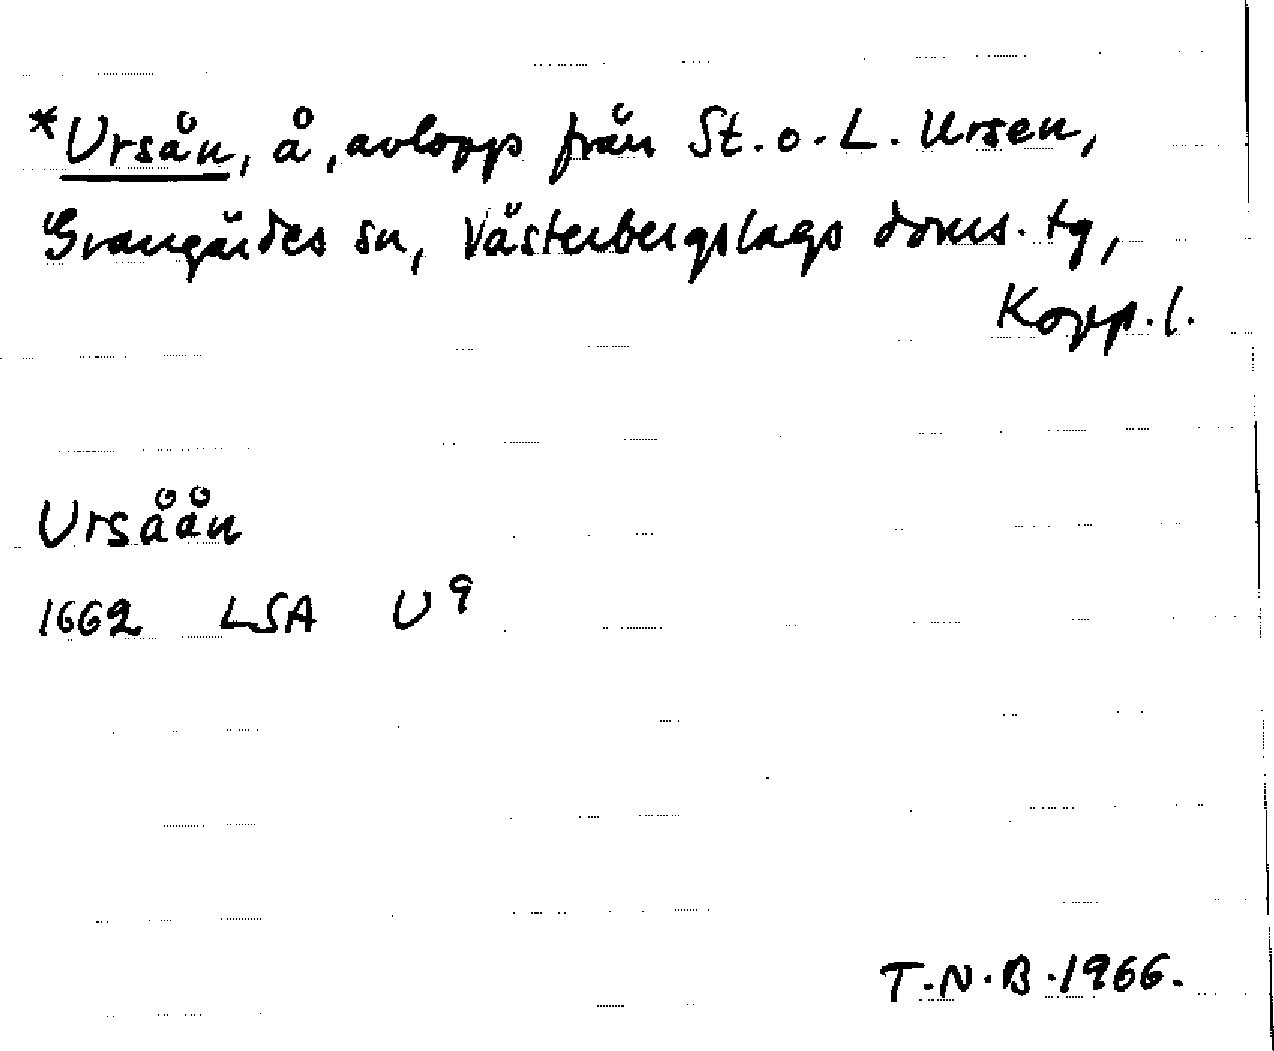 *Ursån, å, avlopp från St. o. L. Ursen,
Grangärdes sn, Västerbergslags doms. tg,
Kopp. l.
Ursåån
1662 LSA U 9
T.N.B. 1966.